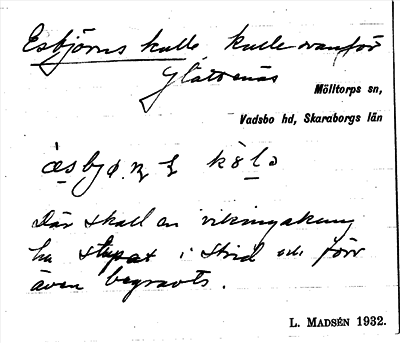 Esbjörns kulle kulle ovanför
Glättenäs
Mölltorps sn,
Vadsbo hd, Skaraborgs län
Där skall en vikingakung
ha stupat i strid och förr
även begravts.
L. MADSÉN 1932.